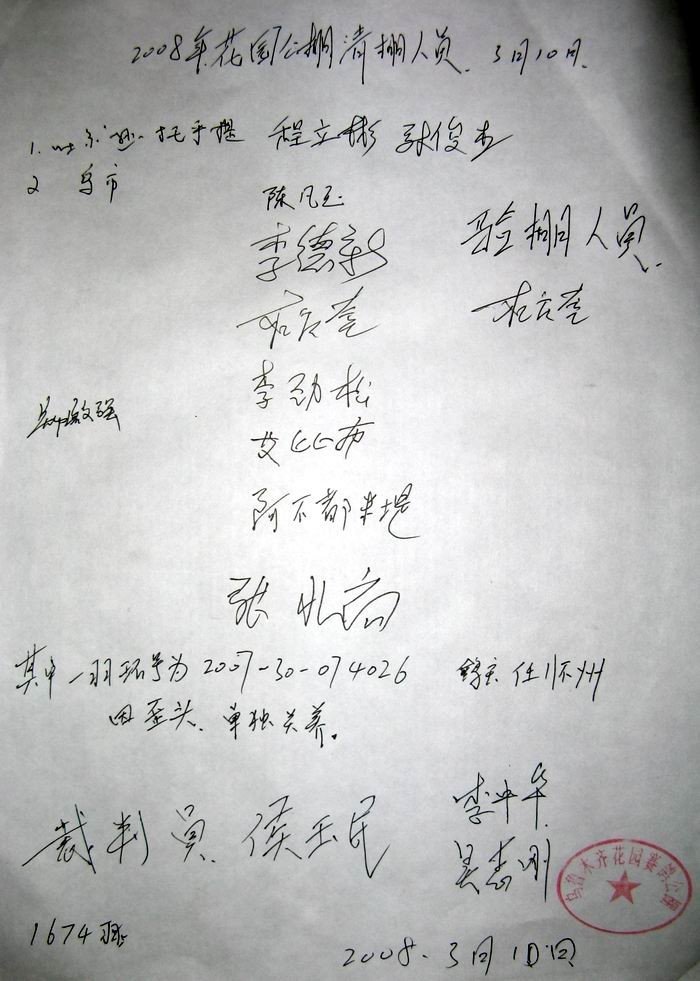 2008年花园公棚清棚人员 3月10日.
1. 托乎提 程立彬 张俊杰
2 乌市
陈凡玉
李德新
验棚人员.
李劲松
艾比布
阿不都米提
张
其中一羽环号为 2007-30-074026 鸽主 任怀州
因歪头. 单独关养。
裁判员 侯玉民
李中华
吴志刚
乌鲁木齐花园赛鸽公棚
1674羽
2008. 3月10日